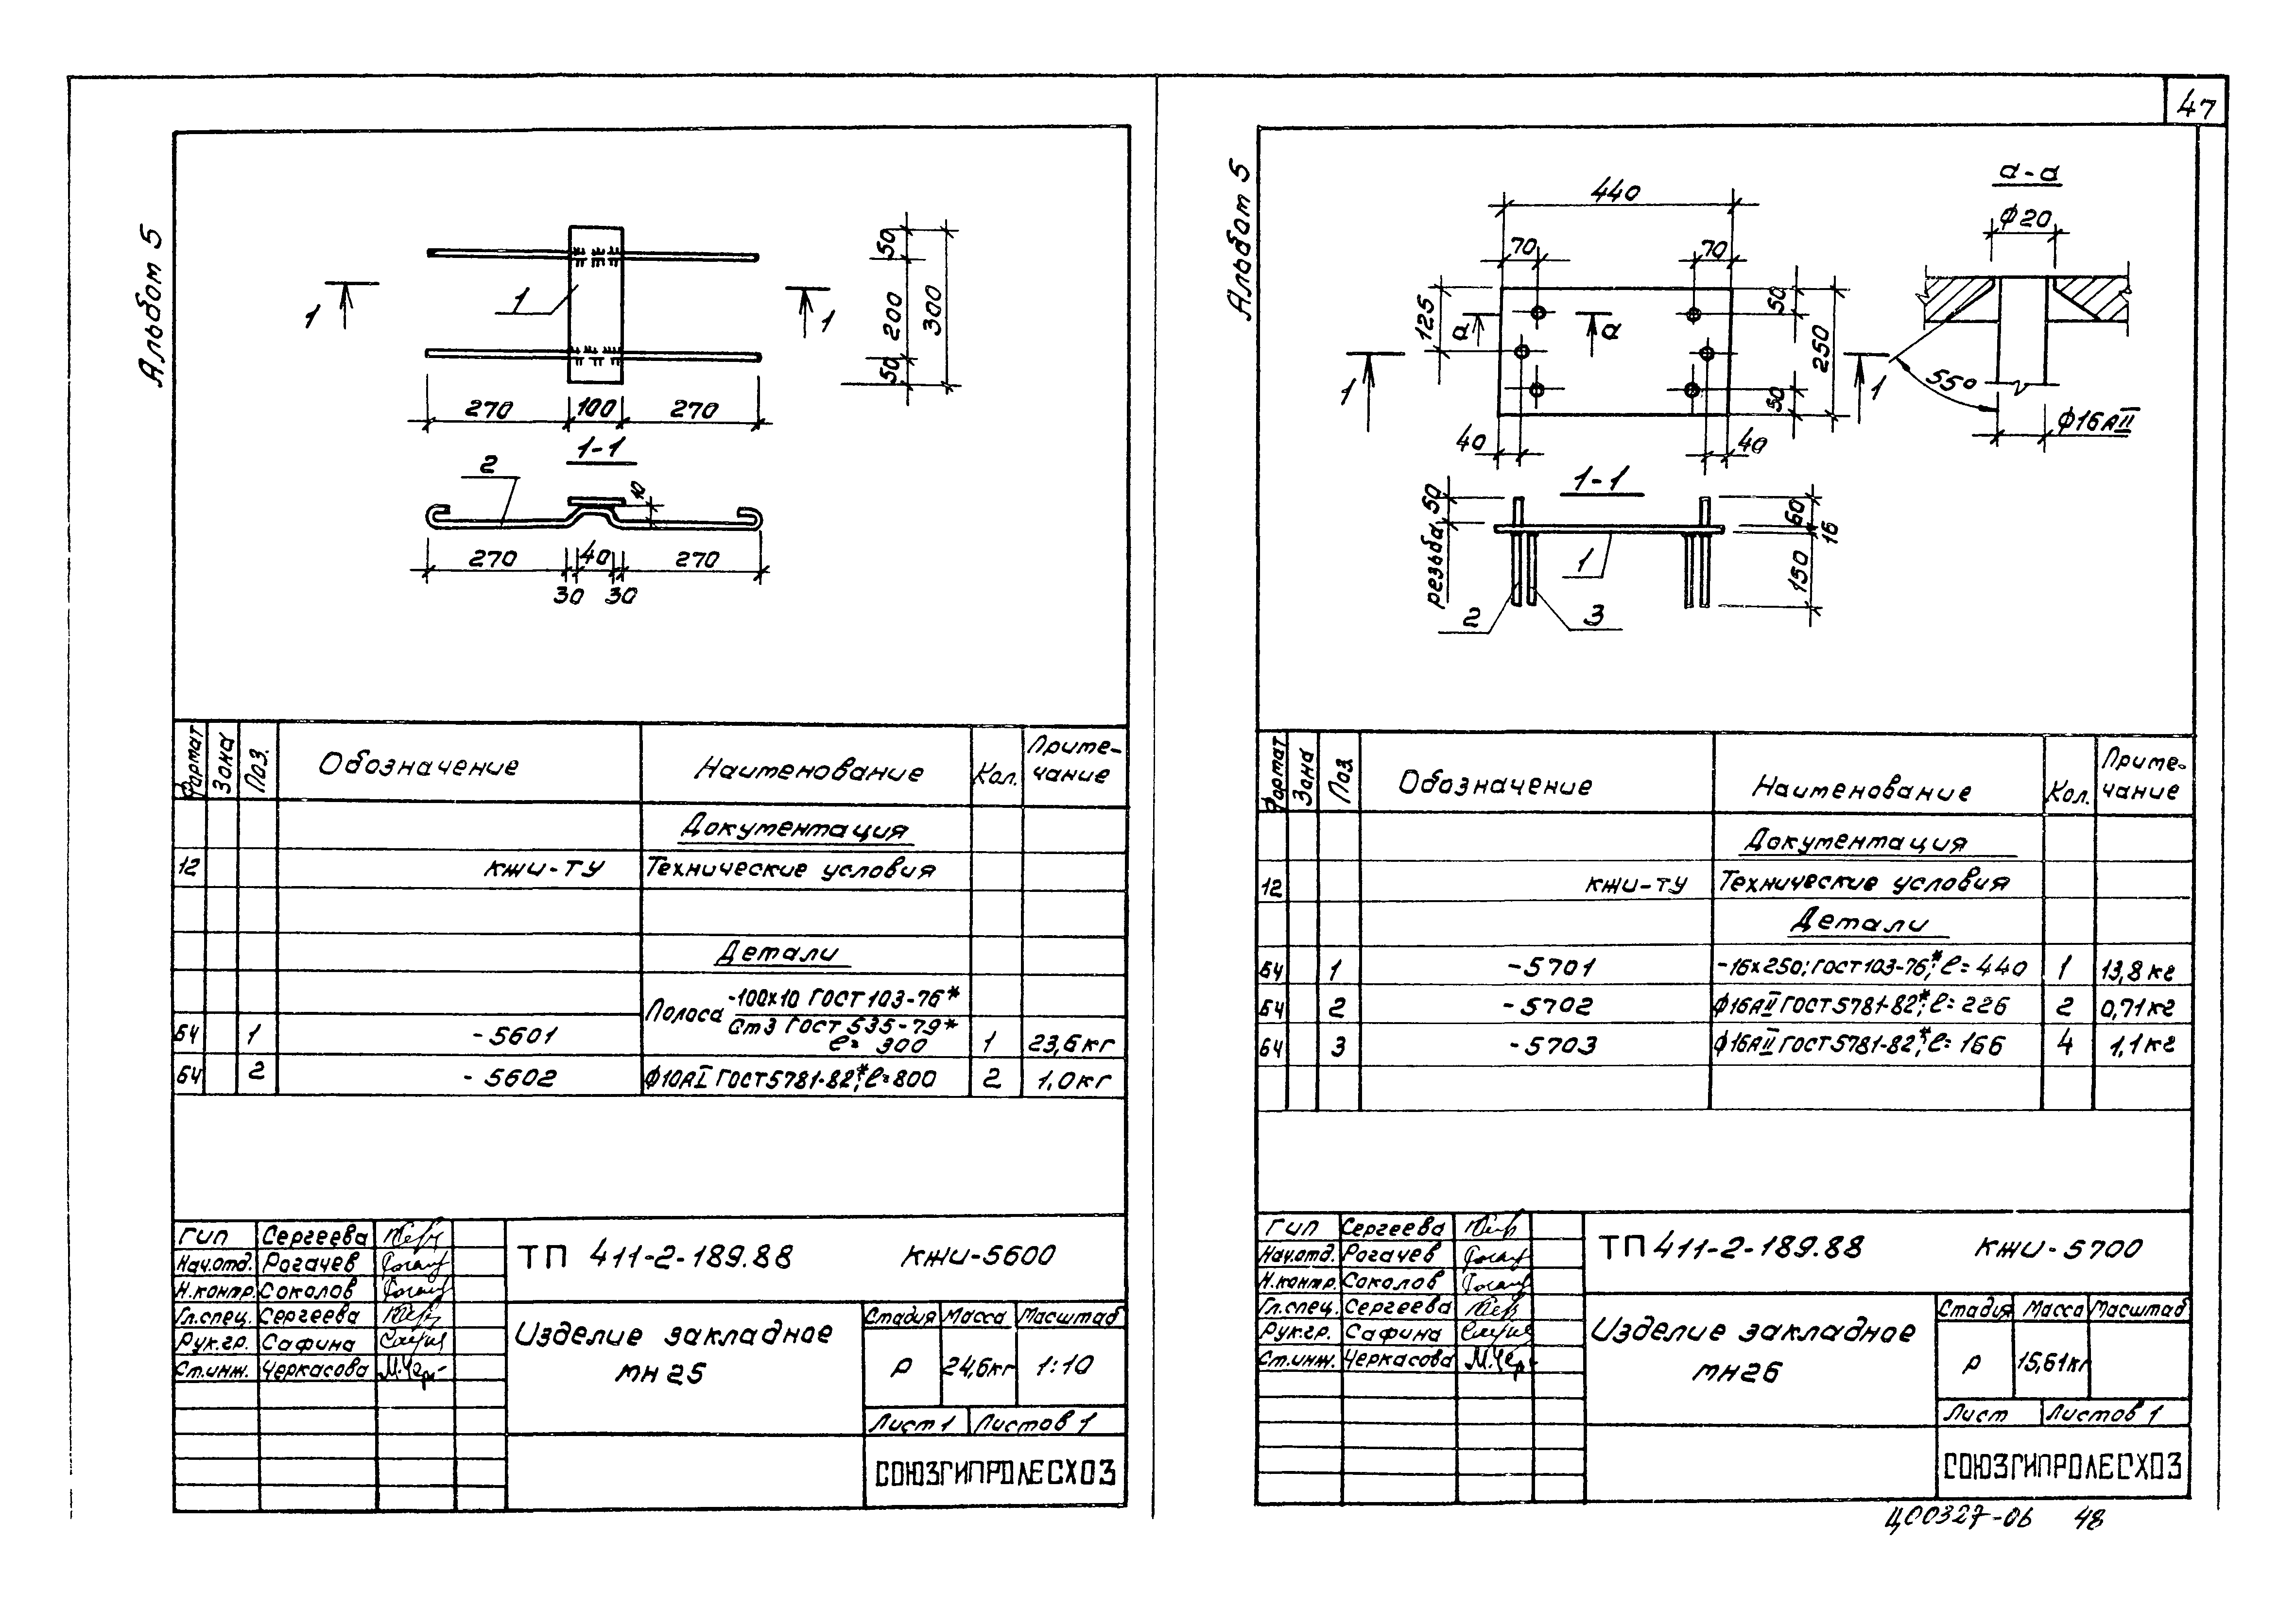 47
Альбом 5
1
1
1
50
200
50
300
270 100 270
1-1
2
10
270 40 270
30 30
Формат Зона Поз. Обозначение Наименование Кол. Приме-
чание
Документация
12 КЖИ-ТУ Технические условия
Детали
Полоса -100х10 ГОСТ 103-76*
Ст3 ГОСТ 535-79*
БЧ 1 -5601 ℓ= 300 1 23,6кг
БЧ 2 -5602 ф10АI ГОСТ 5781-82*; ℓ=800 2 1,0кг
ГИП Сергеева
Нач.отд. Рогачев
Н.контр. Соколов
Гл.спец. Сергеева
Рук.гр. Сафина
Ст.инж. Черкасова
ТП 411-2-189.88 КЖИ-5600
Изделие закладное
МН 25
Стадия Масса Масштаб
Р 24,6кг 1:10
Лист 1 Листов 1
СОЮЗГИПРОЛЕСХОЗ
Альбом 5
440
70 70
125
50
250
50
а а
1 1
40 40
а-а
ф20
55°
ф16АII
1-1
50
резьба
60
16
150
1
2 3
Формат Зона Поз. Обозначение Наименование Кол. Приме-
чание
Документация
12 КЖИ-ТУ Технические условия
Детали
БЧ 1 -5701 -16х250; ГОСТ 103-76*; ℓ= 440 1 13,8кг
БЧ 2 -5702 ф16АII ГОСТ 5781-82*; ℓ= 226 2 0,71кг
БЧ 3 -5703 ф16АII ГОСТ 5781-82*; ℓ= 166 4 1,1кг
ГИП Сергеева
Нач.отд. Рогачев
Н.контр. Соколов
Гл.спец. Сергеева
Рук.гр. Сафина
Ст.инж. Черкасова
ТП 411-2-189.88 КЖИ-5700
Изделие закладное
МН26
Стадия Масса Масштаб
Р 15,61кг
Лист Листов 1
СОЮЗГИПРОЛЕСХОЗ
Ц00327-06 48